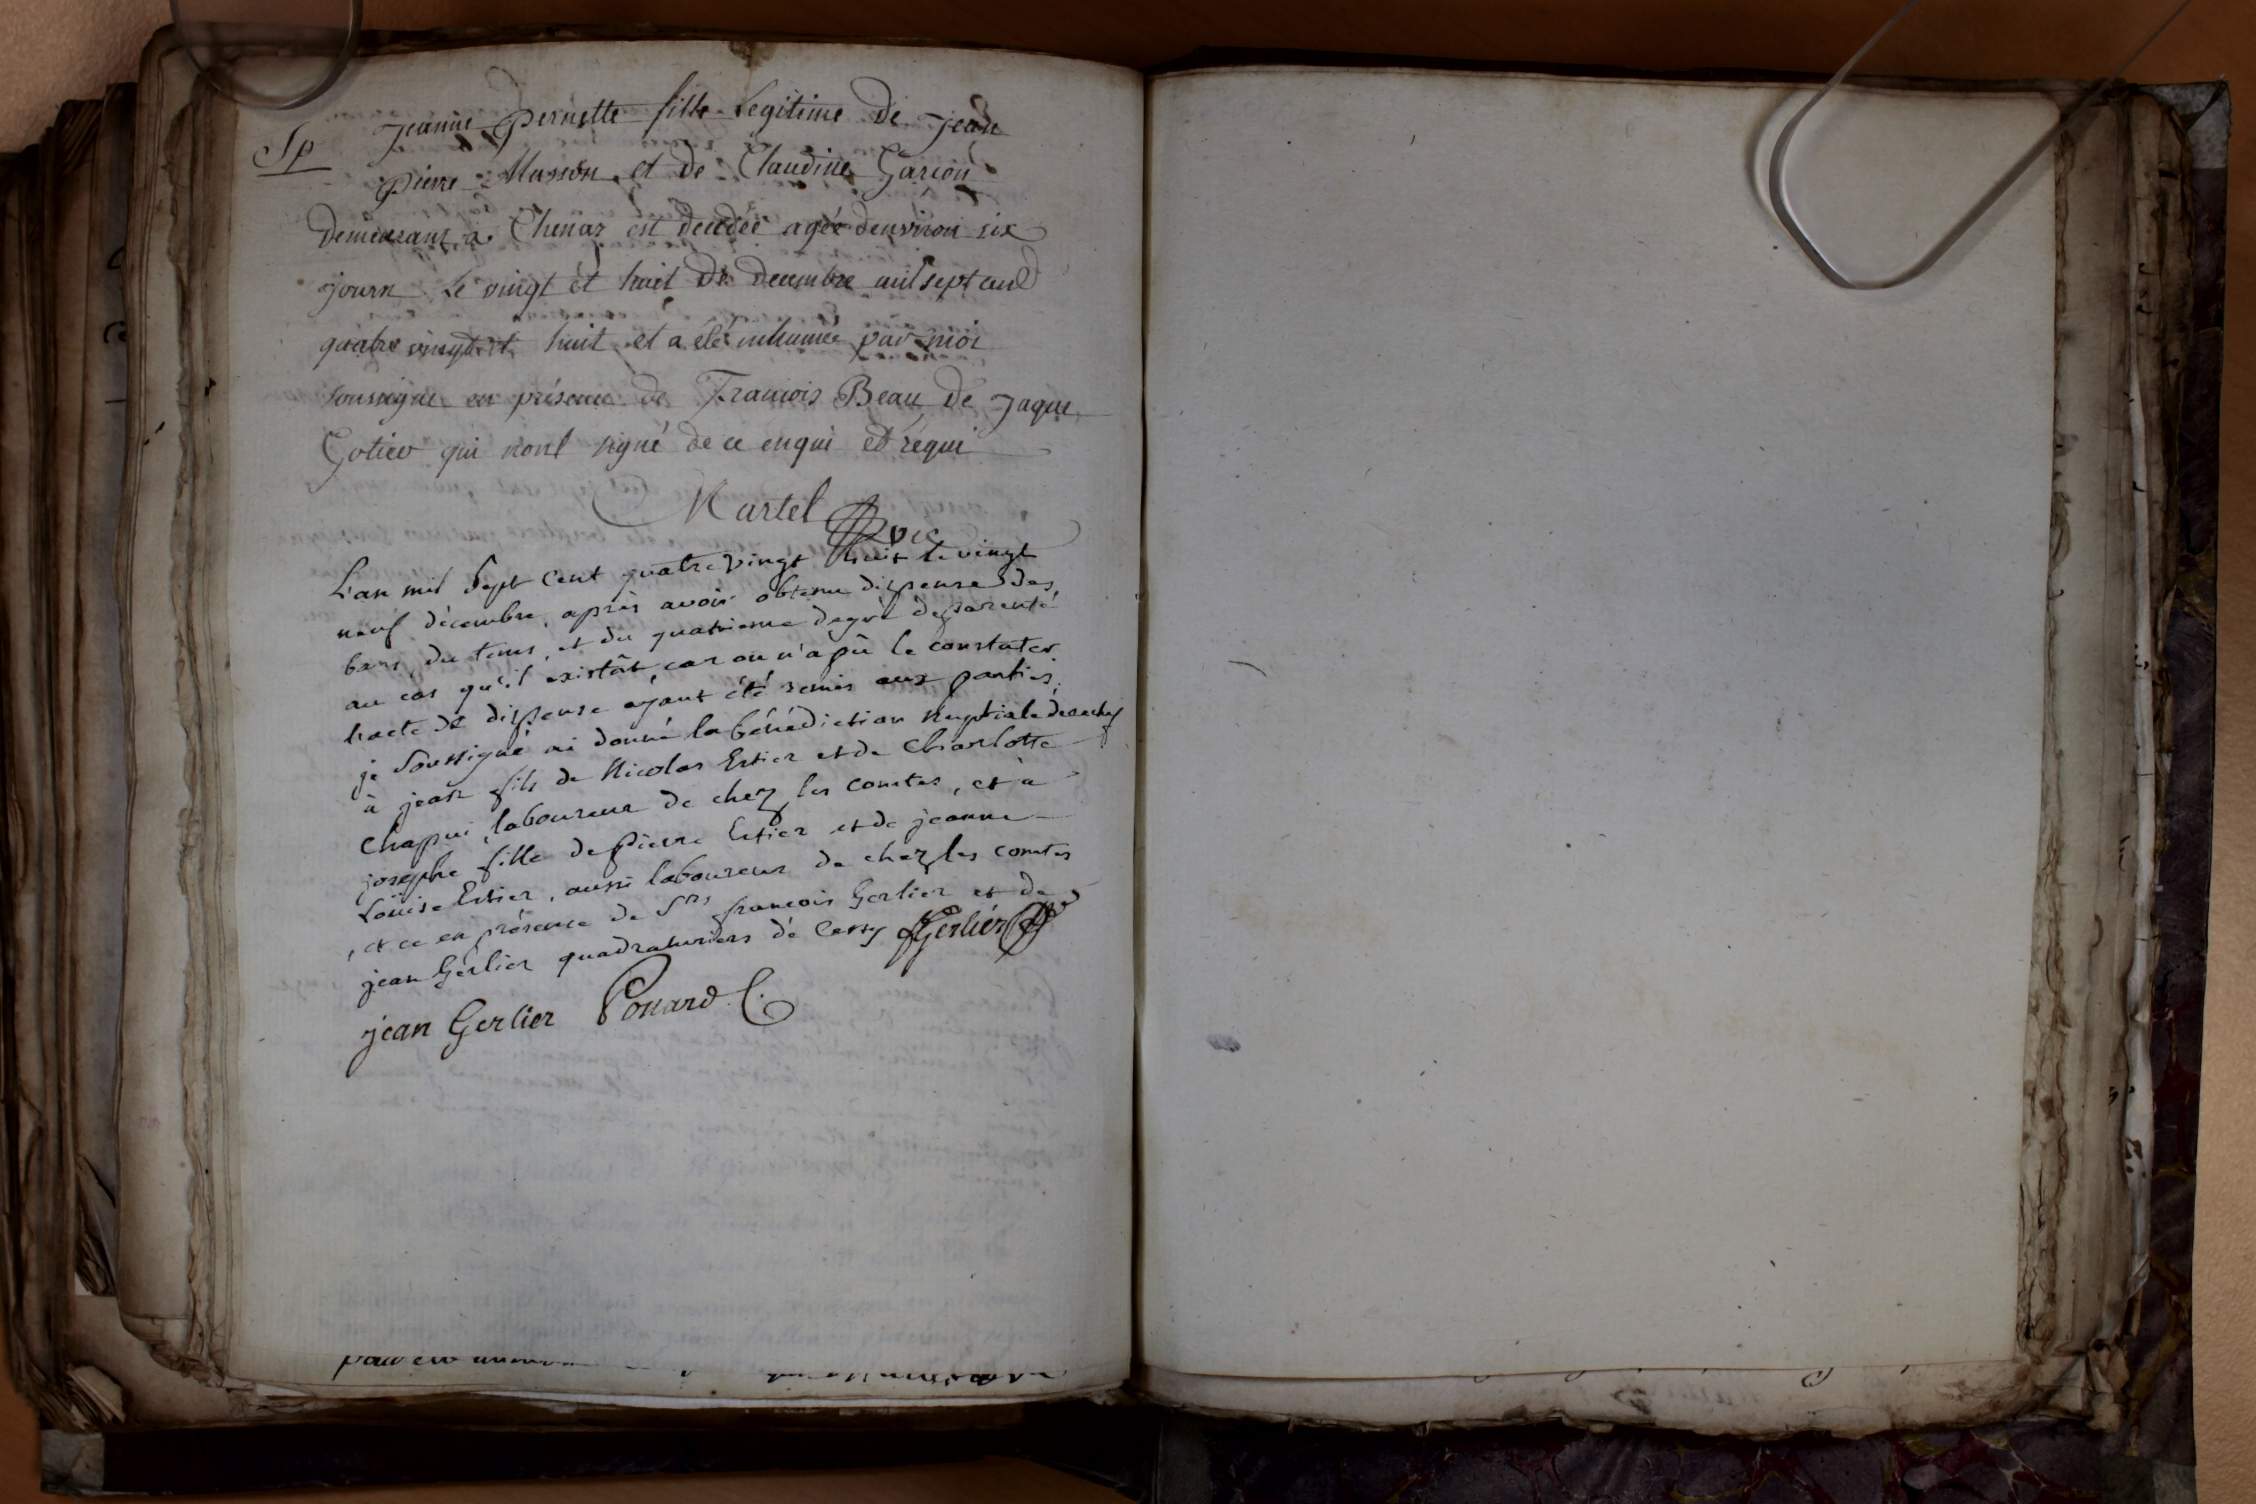 Sp
Jeanne Pernette fille Legitime de Jean
pierre Masson et de Claudine Garçon
demeurant a Chenaz est decedée agée denviron six
jours Le vingt et huit de decembre mil sept cent
quatre vingt et huit et a été inhumée par moi
soussigné en présence de François Beau de Jaque
Gotier qui nont signé de ce enquis et requi
Martel vic
L'an mil Sept Cent quatre vingt huit le vingt
neuf décembre, après avoir obtenu dispense des
bans, du tems, et du quatrieme degré de parenté
au cas qu'il existât, car on n'a pû le constater
l'acte de dispense ayant été remis aux parties,
je Soussigné ai donné la bénédiction Nuptiale
à jean fils de Nicolas Ertier et de Charlotte
Chapui, laboureur de chez les comtes, et à
josephe fille de pierre Ertier et de jeanne
Louise Ertier, aussi laboureur de chez les comtes
, et ce en présence de Srs françois Gerlier et de
jean Gerlier quadraturiers de Cessy fGerliér
jean Gerlier Ponard C.